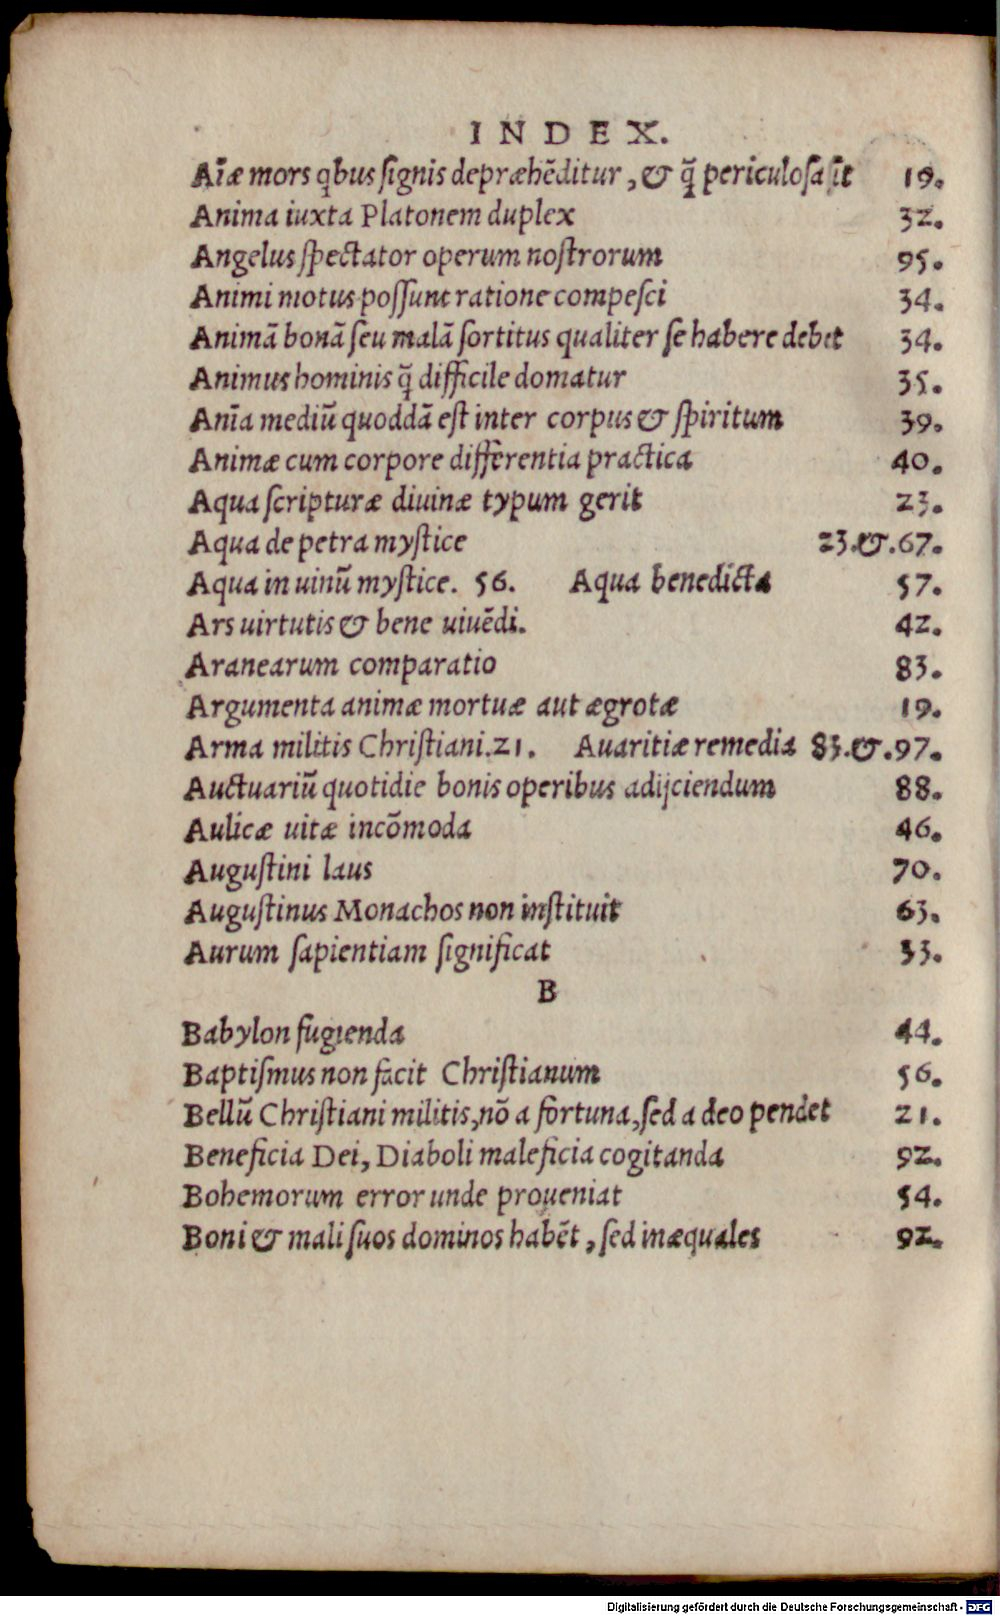 INDEX.
Aīæ mors qbus ſignis depræhēditur, & q̄ periculoſa ſit 19.
Anima iuxta Platonem duplex 32.
Angelus ſpectator operum noſtrorum 95.
Animi motus poſſunt ratione compeſci 34.
Animā bonā ſeu malā ſortitus qualiter ſe habere debet 34.
Animus hominis q̄ difficile domatur 35.
Anīa mediū quoddā eſt inter corpus & ſpiritum 39.
Animæ cum corpore differentia practica 40.
Aqua ſcripturæ diuinæ typum gerit 23.
Aqua de petra myſtice 23.&.67.
Aqua in uinū myſtice. 56. Aqua benedicta 57.
Ars uirtutis & bene uiuēdi. 42.
Aranearum comparatio 83.
Argumenta animæ mortuæ aut ægrotæ 19.
Arma militis Chriſtiani.21. Auaritiæ remedia 83.&.97.
Auctuariū quotidie bonis operibus adijciendum 88.
Aulicæ uitæ incōmoda 46.
Auguſtini laus 70.
Auguſtinus Monachos non inſtituit 63.
Aurum ſapientiam ſignificat 33.
B
Babylon fugienda 44.
Baptiſmus non facit Chriſtianum 56.
Bellū Chriſtiani militis, nō a fortuna, ſed a deo pendet 21.
Beneficia Dei, Diaboli maleficia cogitanda 92.
Bohemorum error unde proueniat 54.
Boni & mali ſuos dominos habēt, ſed inæquales 92.
Digitalisierung gefördert durch die Deutsche Forschungsgemeinschaft - DFG